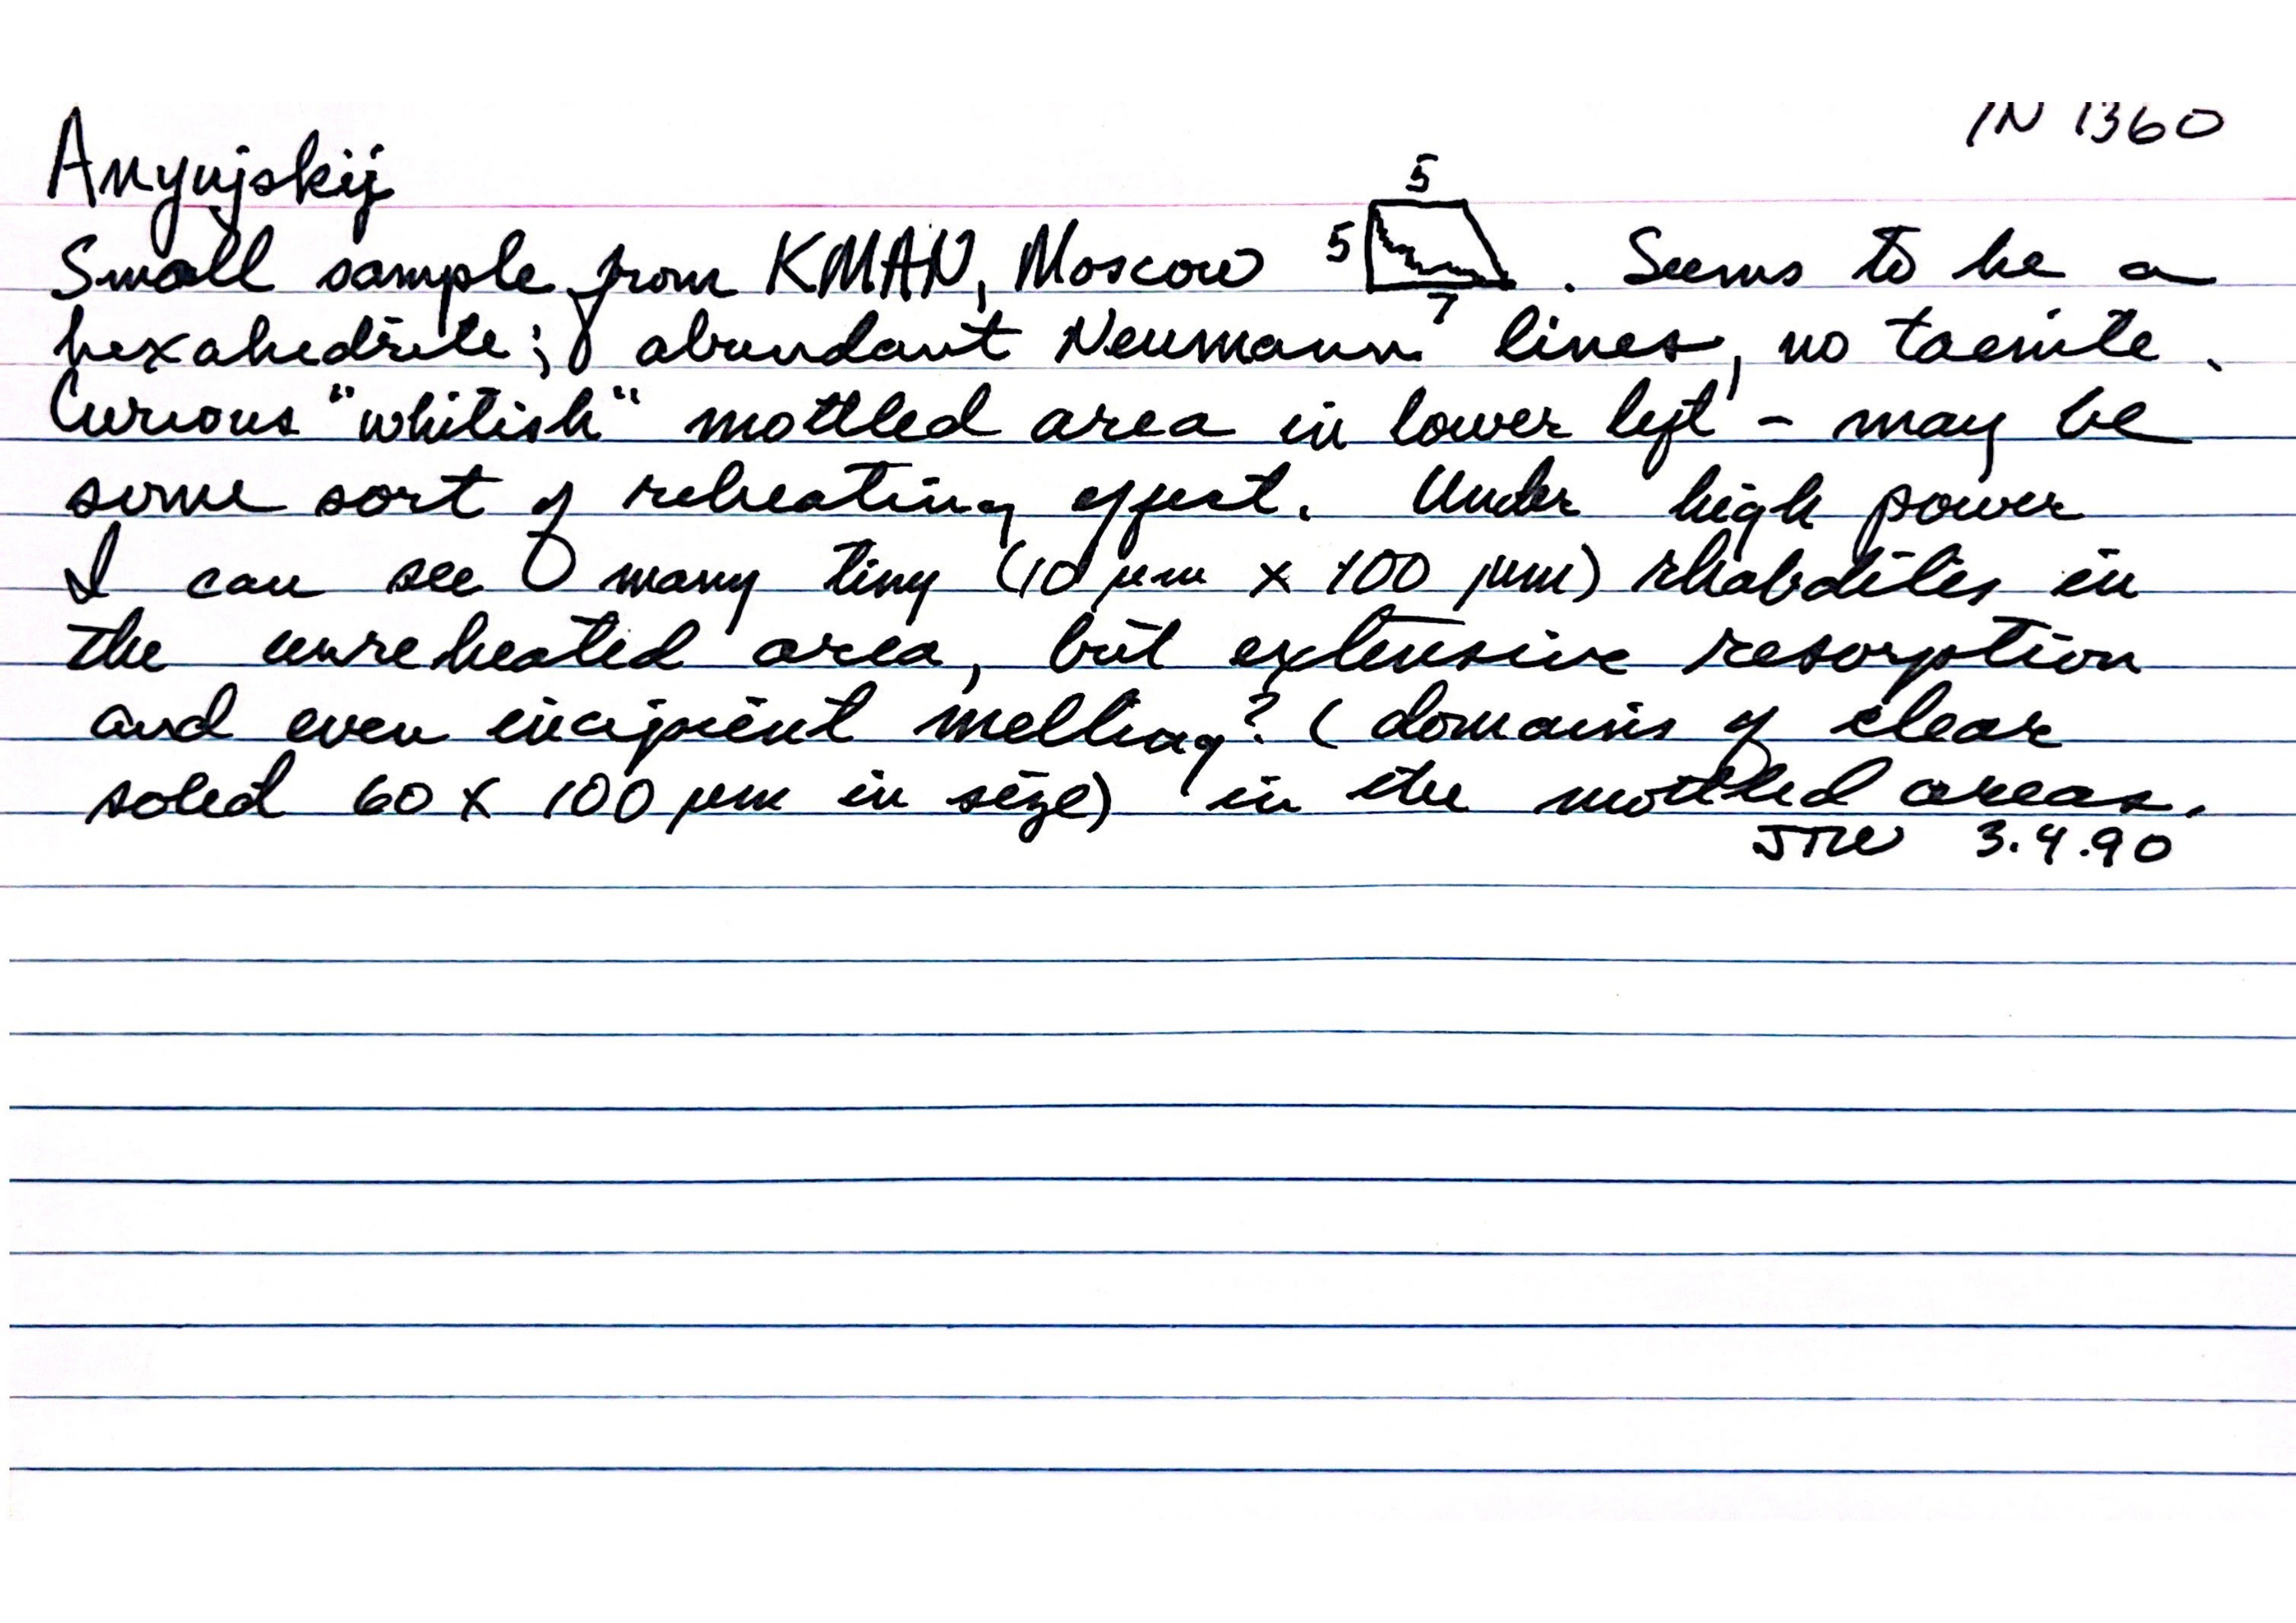 IN 1360
Anyujskij
5
Small sample from KMAN, Moscow 5 7 . Seems to be a
hexahedrite; abundant Neumann lines, no taenite.
Curious "whitish" mottled area in lower left - may be
some sort of reheating effect. Under high power
I can see many tiny (10 µm x 100 µm) rhabdites in
the unreheated area, but extensive resorption
and even incipient melting? (domains of clear
solid 60 x 100 µm in size) in the mottled areas.
JTW 3.4.90